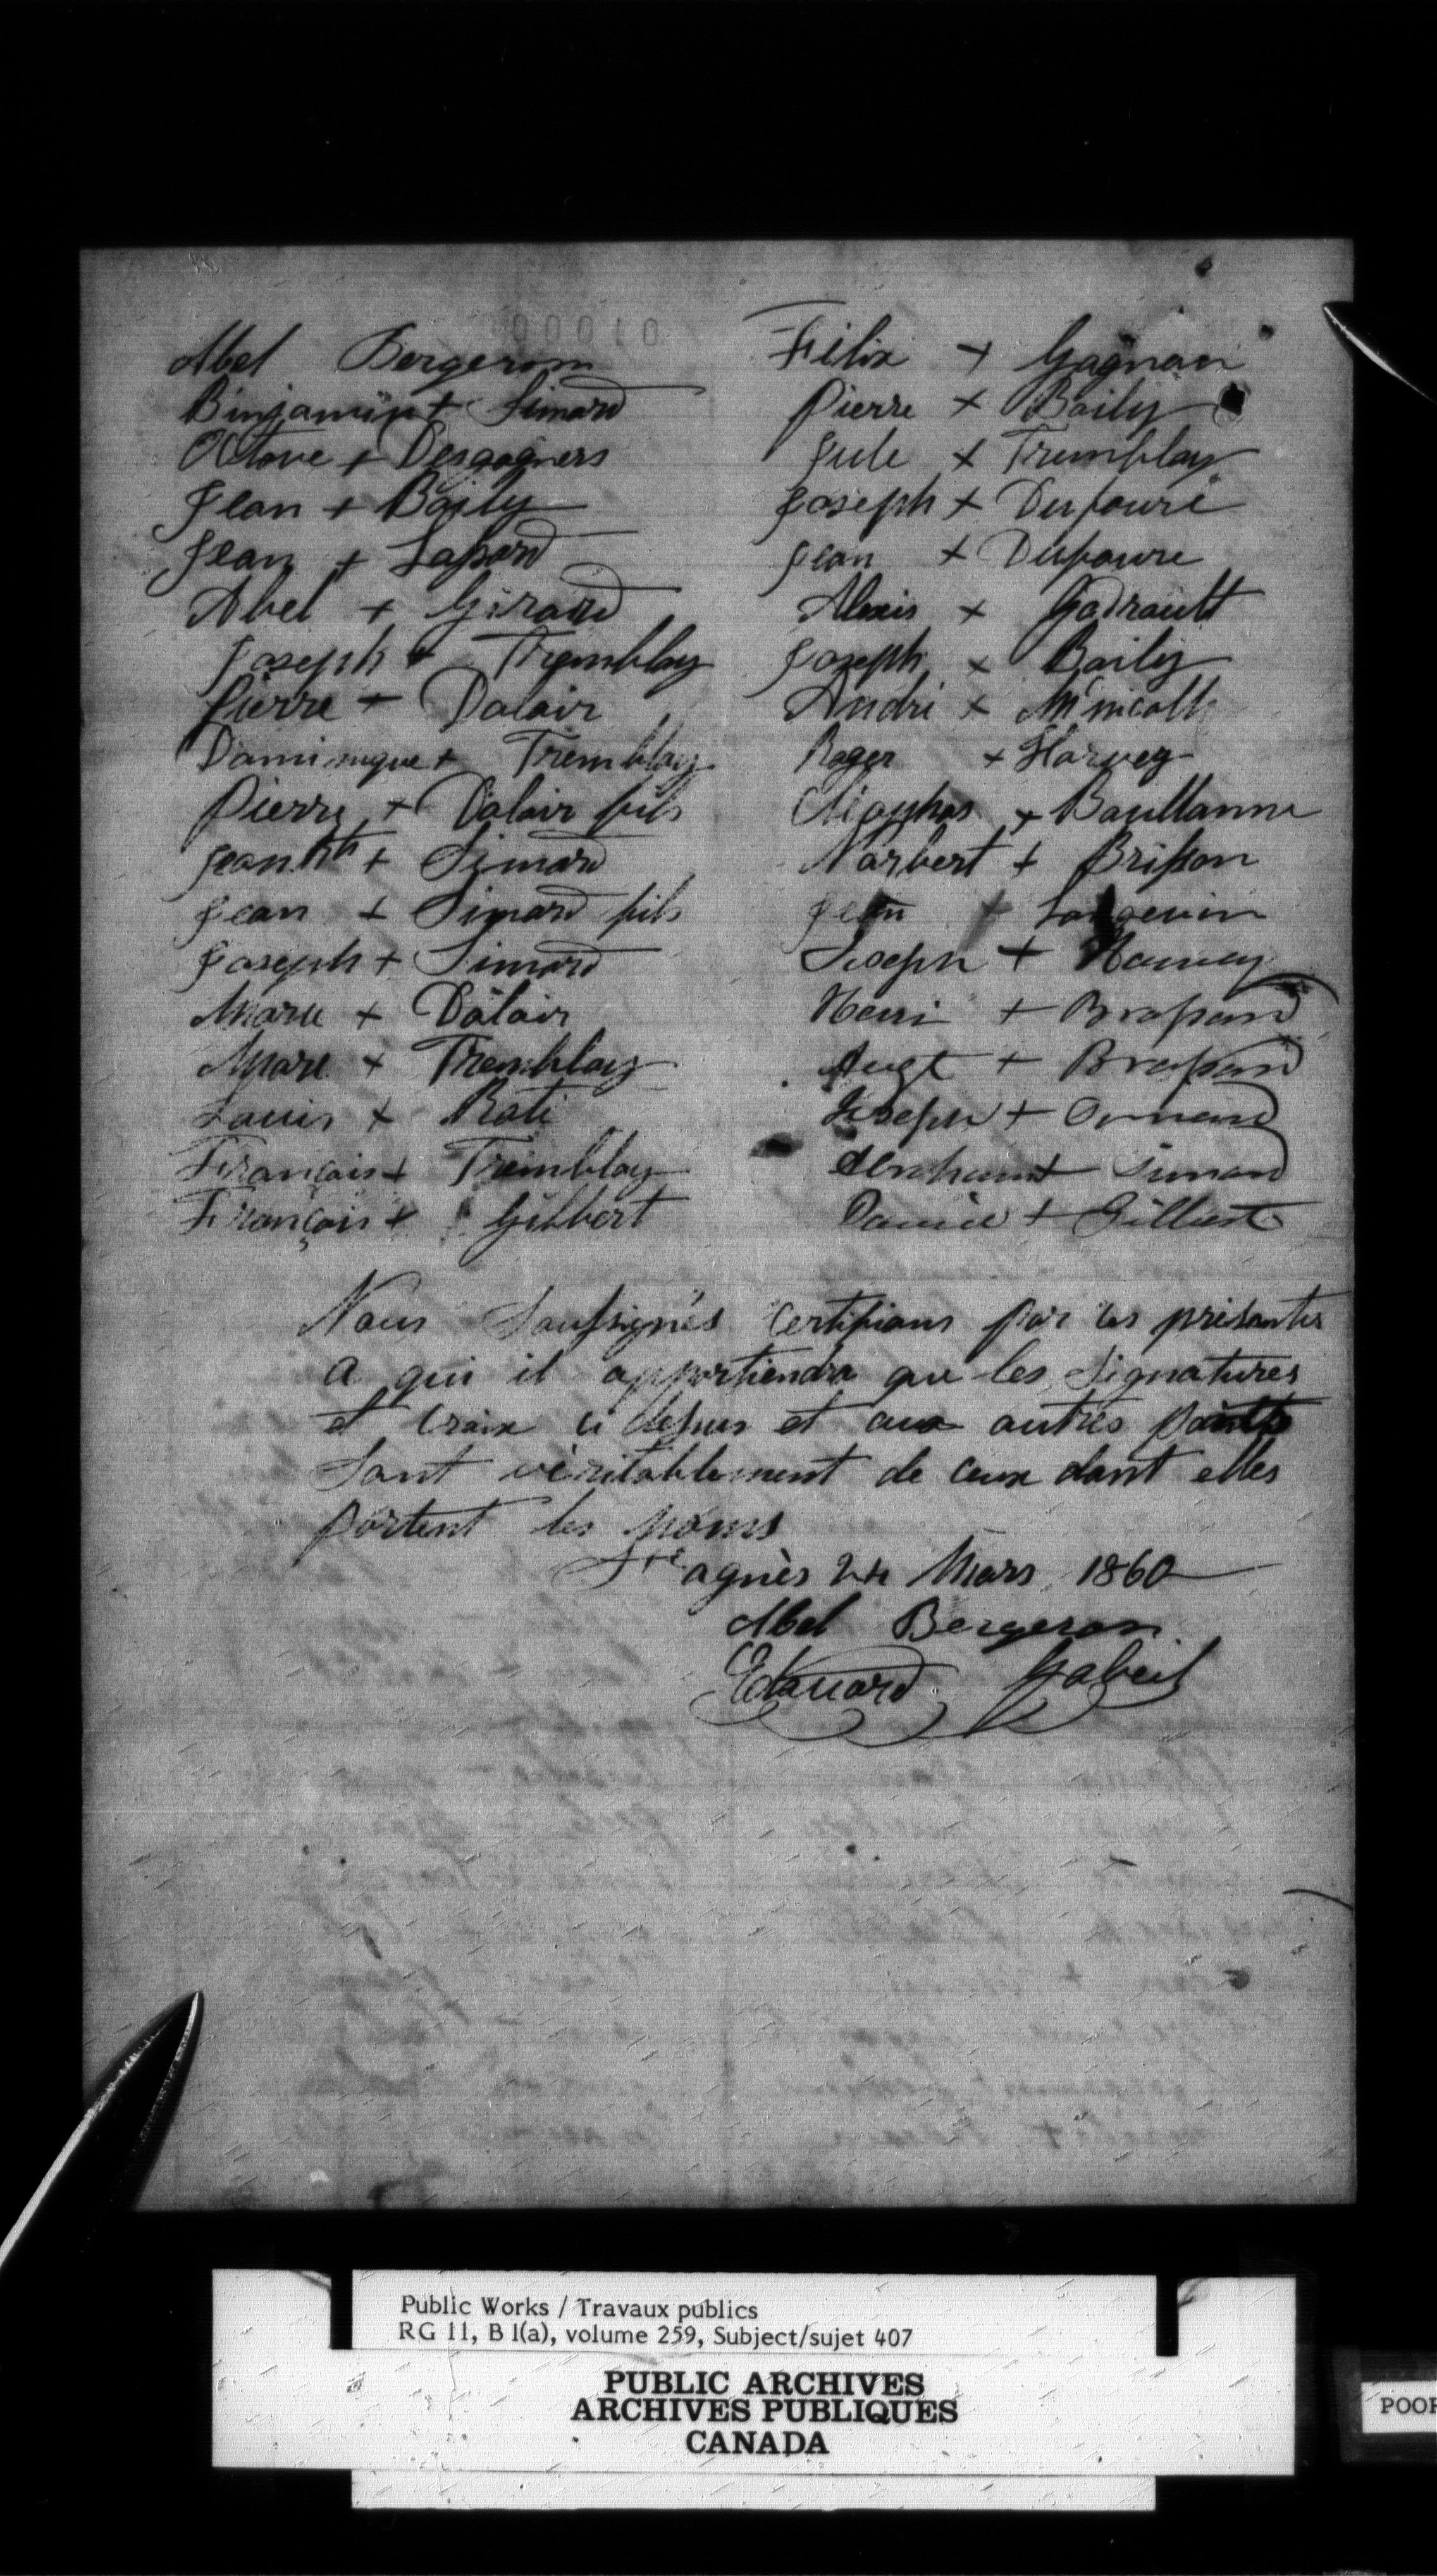 Abel Bergeron
Binjamin + Simard
Octave + Desgagners
Jean + Baily
Jean + Sapard
Abel + Girard
Joseph + Tremblay
Pierre + Dalair
Daminique + Tremblay
Pierre + Dalair fils
Jean Bte + Simard
Jean + Simard fils
Joseph + Simard
Marie + Dalair
Mare + Tremblay
Louis + Rati
François + Tremblay
François + Gilbert
Félix + Gagnon
Pierre + Baily
Jule + Tremblay
Joseph + Dufoure
Jean + Dufoure
Alexis + Godrault
Joseph + Baily
André + McNicoll
Roger + Harvey
+ Baullanne
Norbert + Brisson
Jean + Langevin
Joseph + Harvey
Henri + Brassard
Augt + Brassard
Joseph + Ornend
Abraham + Simard
+ Gilbert
Nous Soussignés certifions par les présantes
A qui il appartiendra que les Signatures
et Craix ci dessus et aux autres
Sont véritablement de ceux dont elles
portent les noms
Ste agnès 24 Mars 1860
Abel Bergeron
Edouard
Public Works / Travaux publics
RG 11, B 1(a), volume 259, Subject/sujet 407
PUBLIC ARCHIVES
ARCHIVES PUBLIQUES
CANADA
POOR